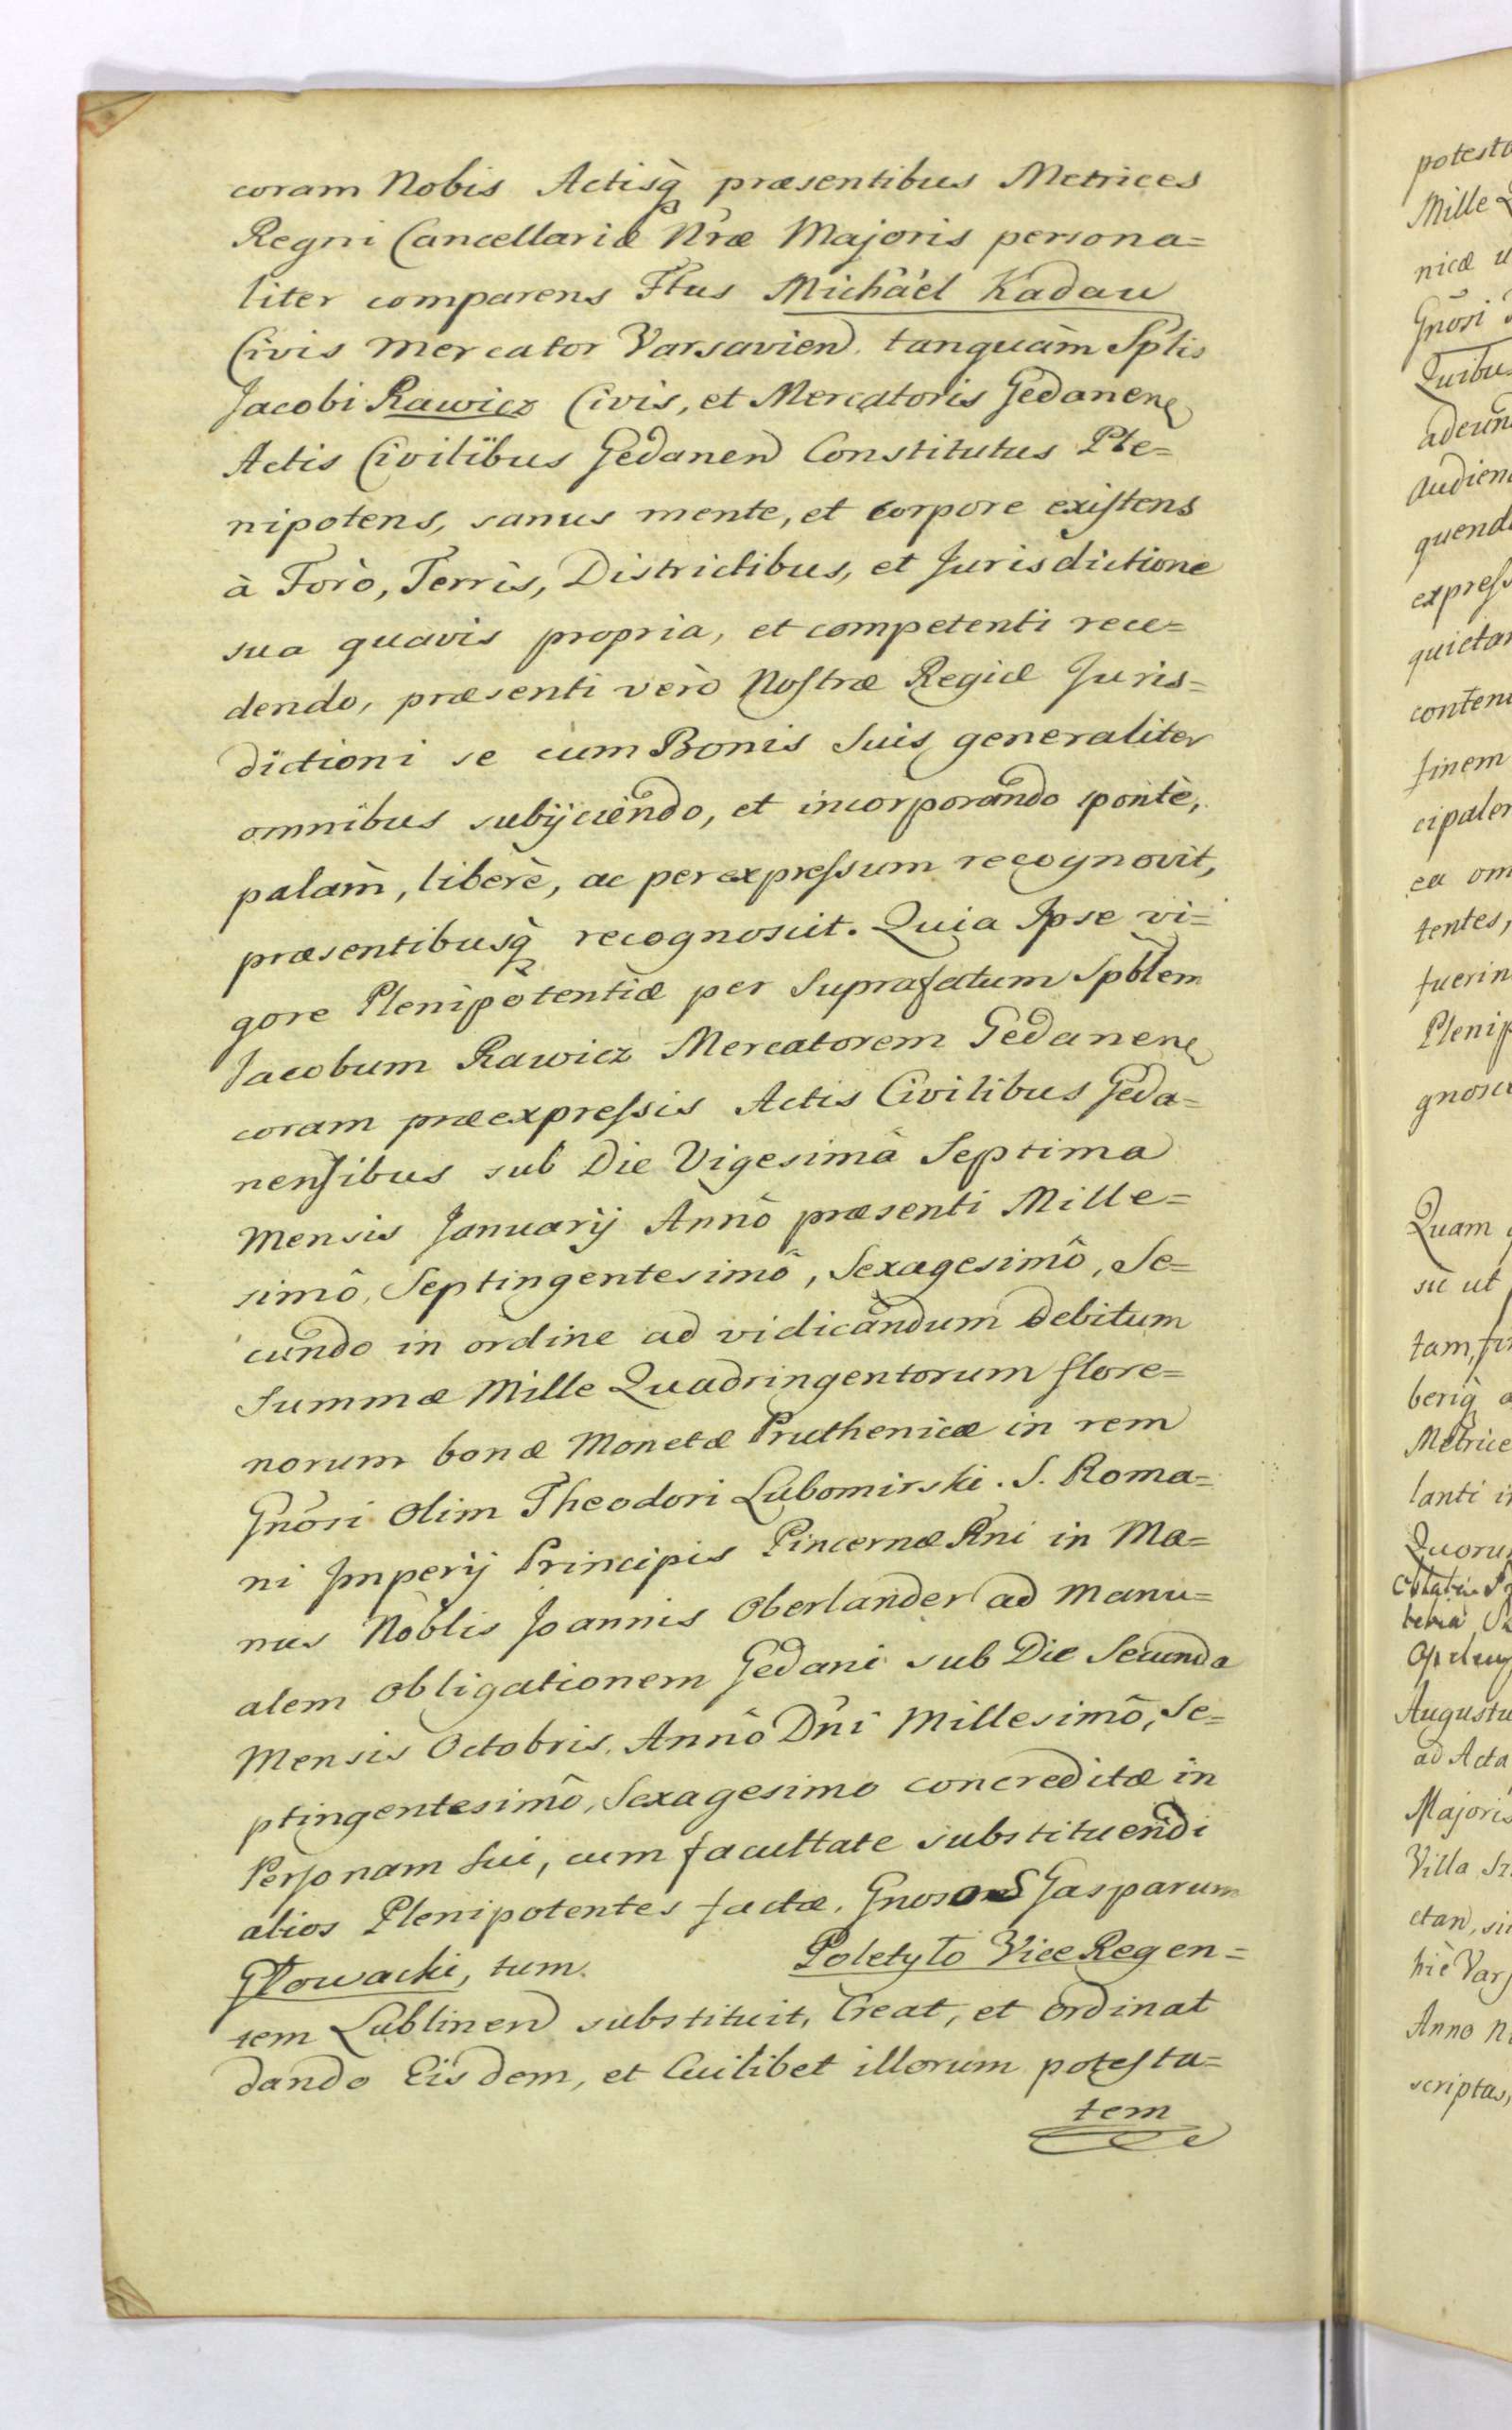 coram Nobis Actisq̀ præsentibus Metrices
Regni Cancellariæ Nræ Majoris persona=
liter comparens Ftus Michäél Kadau
Civis Mercator Varsavien. tanquàm Sptis
Jacobi Rawicz Civis, et Mercatoris Gedanen
Actis Civilibus Gedanen Constitutus Ple=
nipotens, sanus mente, et corpore existens
à Forò, Terrìs, Districtibus, et Jurisdictione
sua quavis propria, et competenti rece=
dendo, præsenti verò Nostræ Regiæ Juris=
dictioni se cum Bonis Suis generaliter
omnibus subijciendo, et incorporando spontè,
palàm, liberè, ac per expressum recognovit,
præsentibusq̀ recognoscit. Quia Ipse vi=
gore Plenipotentiæ per Suprafatum Spblem
Jacobum Rawicz Mercatorem Gedanen
coram præexpressis Actis Civilibus Geda=
nensibus sub Die Vigesimâ Septima
Mensis Januarij Annô præsenti Mille=
simô, Septingentesimô, Sexagesimô, Se=
cundo in ordine ad vidicandum Debitum
Summæ Mille Quadringentorum flore=
norum bonæ Monetæ Pruthenicæ in rem
Gnôsi Olim Theodori Lubomirski. S. Roma=
ni Imperij Principis Pincernæ Rni in Ma=
nus Nôblis Joannis Oberlander ad Manu=
alem Obligationem Gedani sub Die Secunda
Mensis Octobris. Annô Dni Millesimô, Se=
ptingentesimô, Sexagesimo concreditæ in
Personam Sui, cum facultate substituendi
alios Plenipotentes factæ. Gnosos Gasparum
Głowacki, tum Poletyło Vice Regen=
tem Lublinen substituit, Creat, et Ordinat
dando Eisdem, et Cuilibet illorum potesta=
tem
Mille
nicæ
Gnôsi
finem
ea
Quam
ut
tam,
Augustu
ad Acta
Majoris
Villa
hìc
Anno
scriptas,